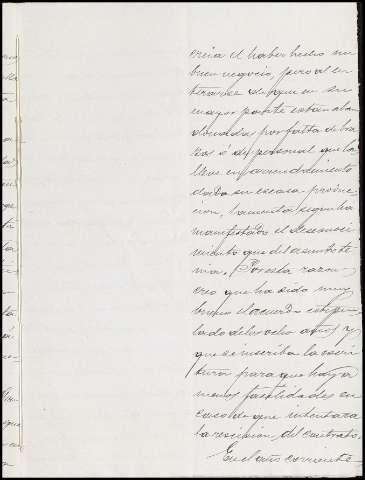 creia el haber hecho un
buen negocio, pero al en-
terarse de que en su
mayor parte estan aban
donadas por falta de bra
zos ó de personal que la
lleve en arrendamiento
dada su escasa produc-
cion, lamenta segun ha
manifestado el desconoci
miento que del asunto te-
nia. Por esta razon
creo que ha sido muy
bueno el acuerdo estipu-
lado de los ocho años y
que se inscriba la escri
tura para que haya
menos fastidades en
caso de que intentara
la rescision del contrato.
En el año corriente